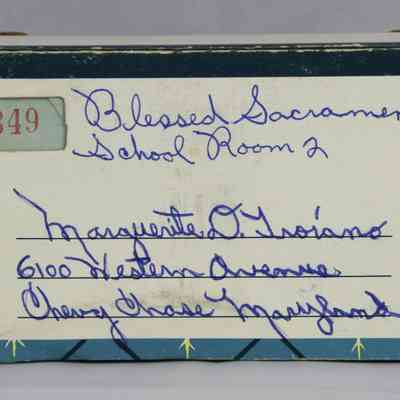 349
Blessed Sacramen
School Room 2
Marguerite D. Troiano
6100 Western Avenue
Chevy Chase Maryland